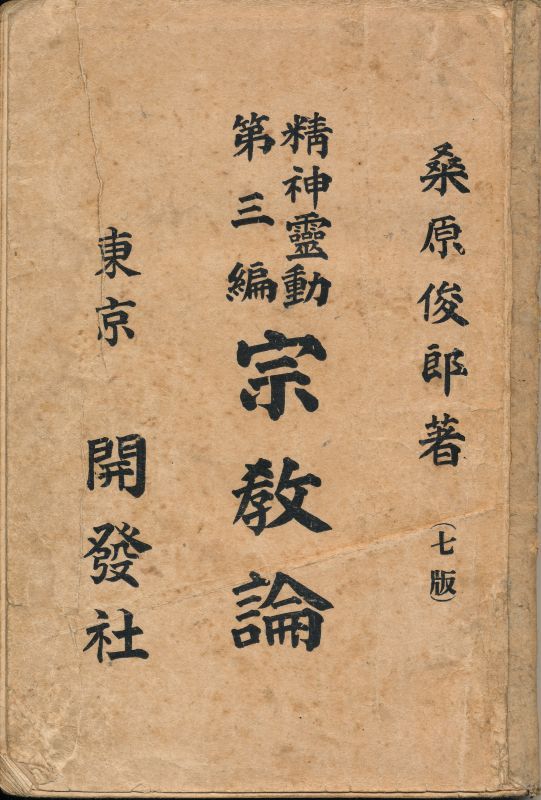 桑原俊郎著（七版）
精神靈動
第三編
宗敎論
東京 開發社